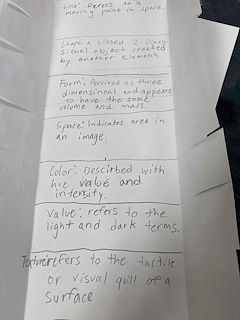 Line: Refers to a
moving point in space.
Shape: a closed 2-Dimen-
sional object created
by another element
Form: Percived as three
dimensinoal and appears
to have the same
volume and mass.
Space: Indicates area in
an image.
Color: Descirbed with
hue value and
intensify.
Value: refers to the
light and dark terms.
Texture: refers to the tactile
or visual quill of a
surface